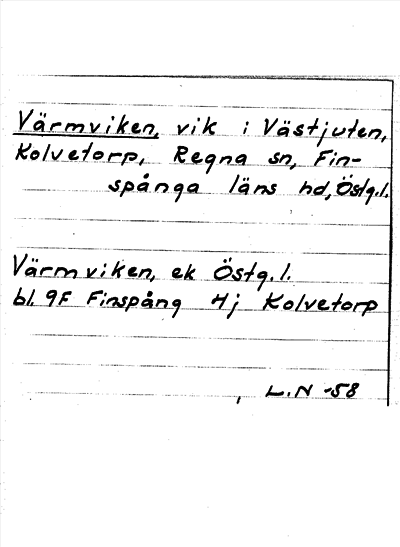 Värmviken, vik i Västjuten,
Kolvetorp, Regna sn, Fin-
spånga läns hd, Östg.l.
Värmviken, ek Östg.l.
bl. 9F Finspång 4j Kolvetorp
L.N -58